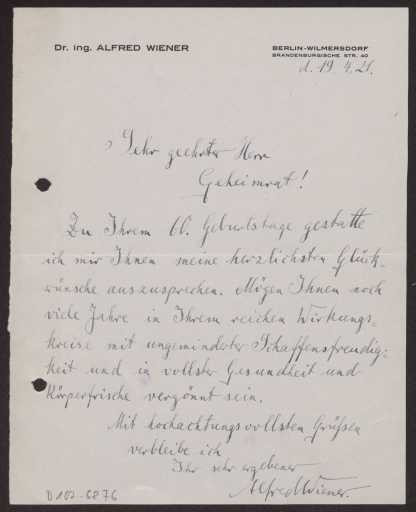 Dr. ing. ALFRED WIENER
BERLIN-WILMERSDORF
BRANDENBURGISCHE STR. 40
d. 19. 4. 21.
Sehr geehrter Herr
Geheimrat!
Zu Ihrem 60. Geburtstage gestatte
ich mir Ihnen meine herzlichsten Glück-
wünsche auszusprechen. Mögen Ihnen noch
viele Jahre in Ihrem reichen Wirkungs-
kreise mit ungeminderter Schaffensfreudig-
keit und in vollster Gesundheit und
Körperfrische vergönnt sein.
Mit hochachtungsvollsten Grüßen
verbleibe ich
Ihr sehr ergebener
Alfred Wiener.
D 102-6876